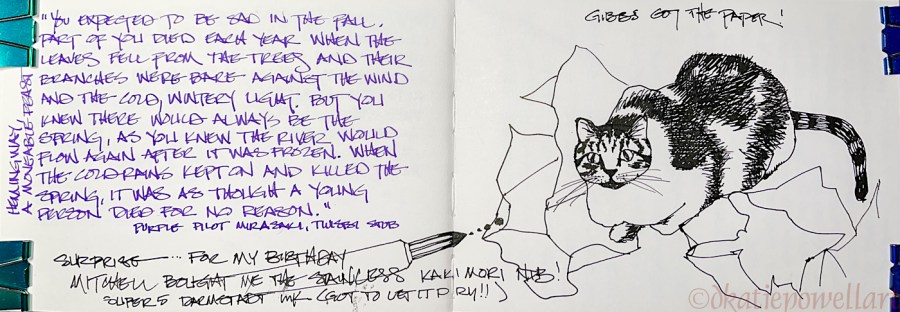 "YOU EXPECTED TO BE SAD IN THE FALL.
PART OF YOU DIED EACH YEAR WHEN THE
LEAVES FELL FROM THE TREES AND THEIR
BRANCHES WERE BARE AGAINST THE WIND
AND THE COLD, WINTERY LIGHT. BUT YOU
KNEW THERE WOULD ALWAYS BE THE
SPRING, AS YOU KNEW THE RIVER WOULD
FLOW AGAIN AFTER IT WAS FROZEN. WHEN
THE COLD RAINS KEPT ON AND KILLED THE
SPRING, IT WAS AS THOUGHT A YOUNG
PERSON DIED FOR NO REASON."
HEMINGWAY
A MOVEABLE FEAST
PURPLE PILOT MURASAKI, TWSBI STUB
SURPRISE ... FOR MY BIRTHDAY
MITCHELL BOUGHT ME THE STAINLESS KAKIMORI NIB!
SUPER5 DARMSTADT INK - (GOT TO LET IT DRY!!)
GIBBS GOT THE PAPER!
©dkatiepowellart